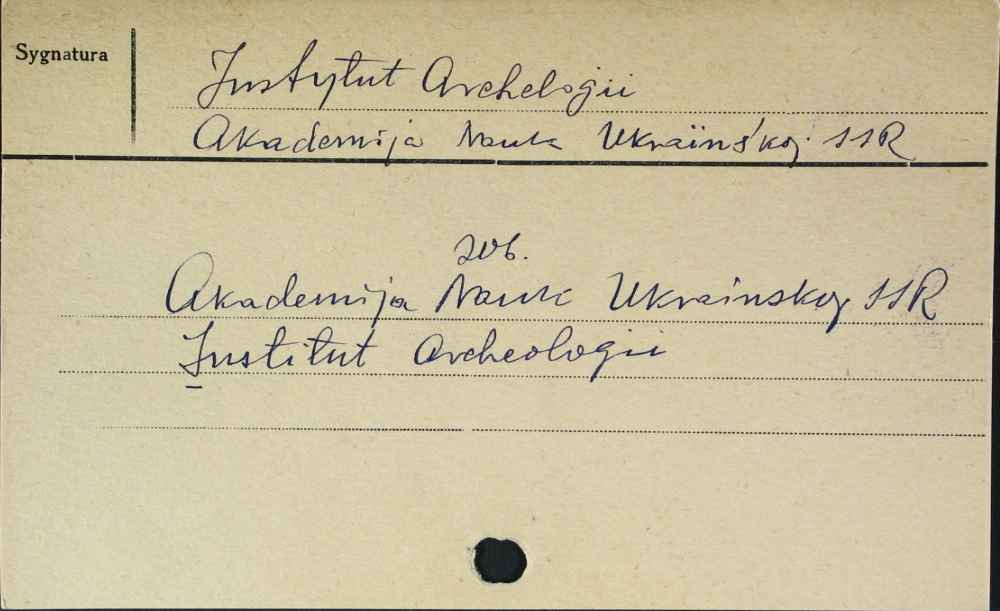 Sygnatura
Instytut Archelogii
Akademija Nauk Ukraïns'koj SSR
zob.
Akademija Nauk Ukrainskoj SSR
Institut Archeologii